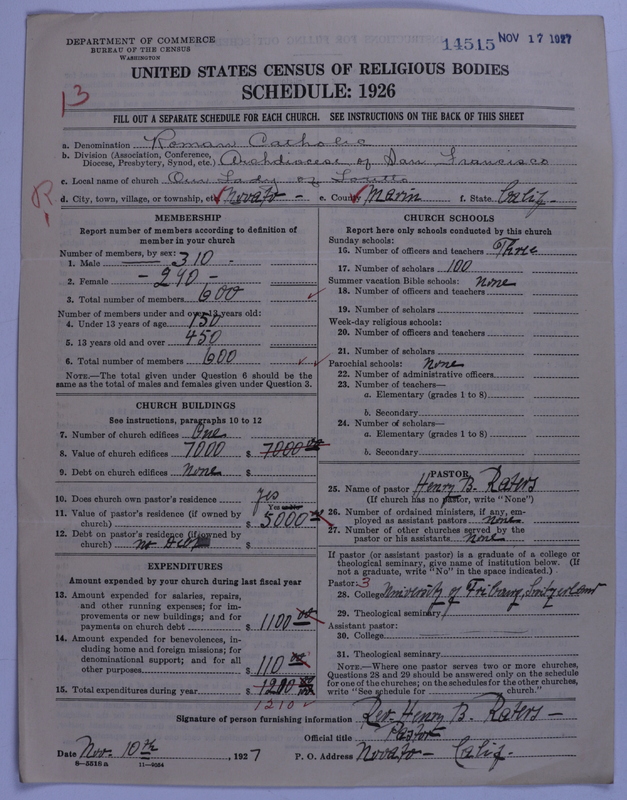 DEPARTMENT OF COMMERCE
BUREAU OF THE CENSUS
WASHINGTON
14515 NOV 17 1927
UNITED STATES CENSUS OF RELIGIOUS BODIES
SCHEDULE: 1926
13
FILL OUT A SEPARATE SCHEDULE FOR EACH CHURCH. SEE INSTRUCTIONS ON THE BACK OF THIS SHEET
a. Denomination Roman Catholic
b. Division (Association, Conference, Diocese, Presbytery, Synod, etc.) Archdiocese of San Francisco
c. Local name of church Our Lady of Loretto
R.
d. City, town, village, or township, etc. Novato - e. County Marin f. State Calif -
MEMBERSHIP
Report number of members according to definition of
member in your church
Number of members, by sex:
1. Male 310 -
2. Female - 290 -
3. Total number of members 600
Number of members under and over 13 years old:
4. Under 13 years of age 150
5. 13 years old and over 450
6. Total number of members 600
NOTE.—The total given under Question 6 should be the
same as the total of males and females given under Question 3.
CHURCH BUILDINGS
See instructions, paragraphs 10 to 12
7. Number of church edifices One
8. Value of church edifices 7000 $ 7000 00
9. Debt on church edifices None $
10. Does church own pastor's residence yes
Yes or No
11. Value of pastor's residence (if owned by
church) $ 5000 00
12. Debt on pastor's residence (if owned by
church) no Debt $
EXPENDITURES
Amount expended by your church during last fiscal year
13. Amount expended for salaries, repairs,
and other running expenses; for im-
provements or new buildings; and for
payments on church debt $ 1100 00
14. Amount expended for benevolences, in-
cluding home and foreign missions; for
denominational support; and for all
other purposes $ 110 00
15. Total expenditures during year $ 1200 00
1210
CHURCH SCHOOLS
Report here only schools conducted by this church
Sunday schools:
16. Number of officers and teachers Three
17. Number of scholars 100
Summer vacation Bible schools: none
18. Number of officers and teachers
19. Number of scholars
Week-day religious schools:
20. Number of officers and teachers
21. Number of scholars
Parochial schools: None
22. Number of administrative officers
23. Number of teachers—
a. Elementary (grades 1 to 8)
b. Secondary
24. Number of scholars—
a. Elementary (grades 1 to 8)
b. Secondary
PASTOR
25. Name of pastor Henry B. Raters
(If church has no pastor, write "None")
26. Number of ordained ministers, if any, em-
ployed as assistant pastors none
27. Number of other churches served by the
pastor or his assistants none
If pastor (or assistant pastor) is a graduate of a college or
theological seminary, give name of institution below. (If
not a graduate, write "No" in the space indicated.)
Pastor: 3
28. College University of Fribourg, Switzerland
29. Theological seminary
Assistant pastor:
30. College
31. Theological seminary
NOTE.—Where one pastor serves two or more churches,
Questions 28 and 29 should be answered only on the schedule
for one of the churches; on the schedules for the other churches,
write "See schedule for church."
Signature of person furnishing information Rev. Henry B. Raters -
Official title Pastor
Date Nov. 10th, 1927 P. O. Address Novato - Calif -
8—5518 a 11—9054